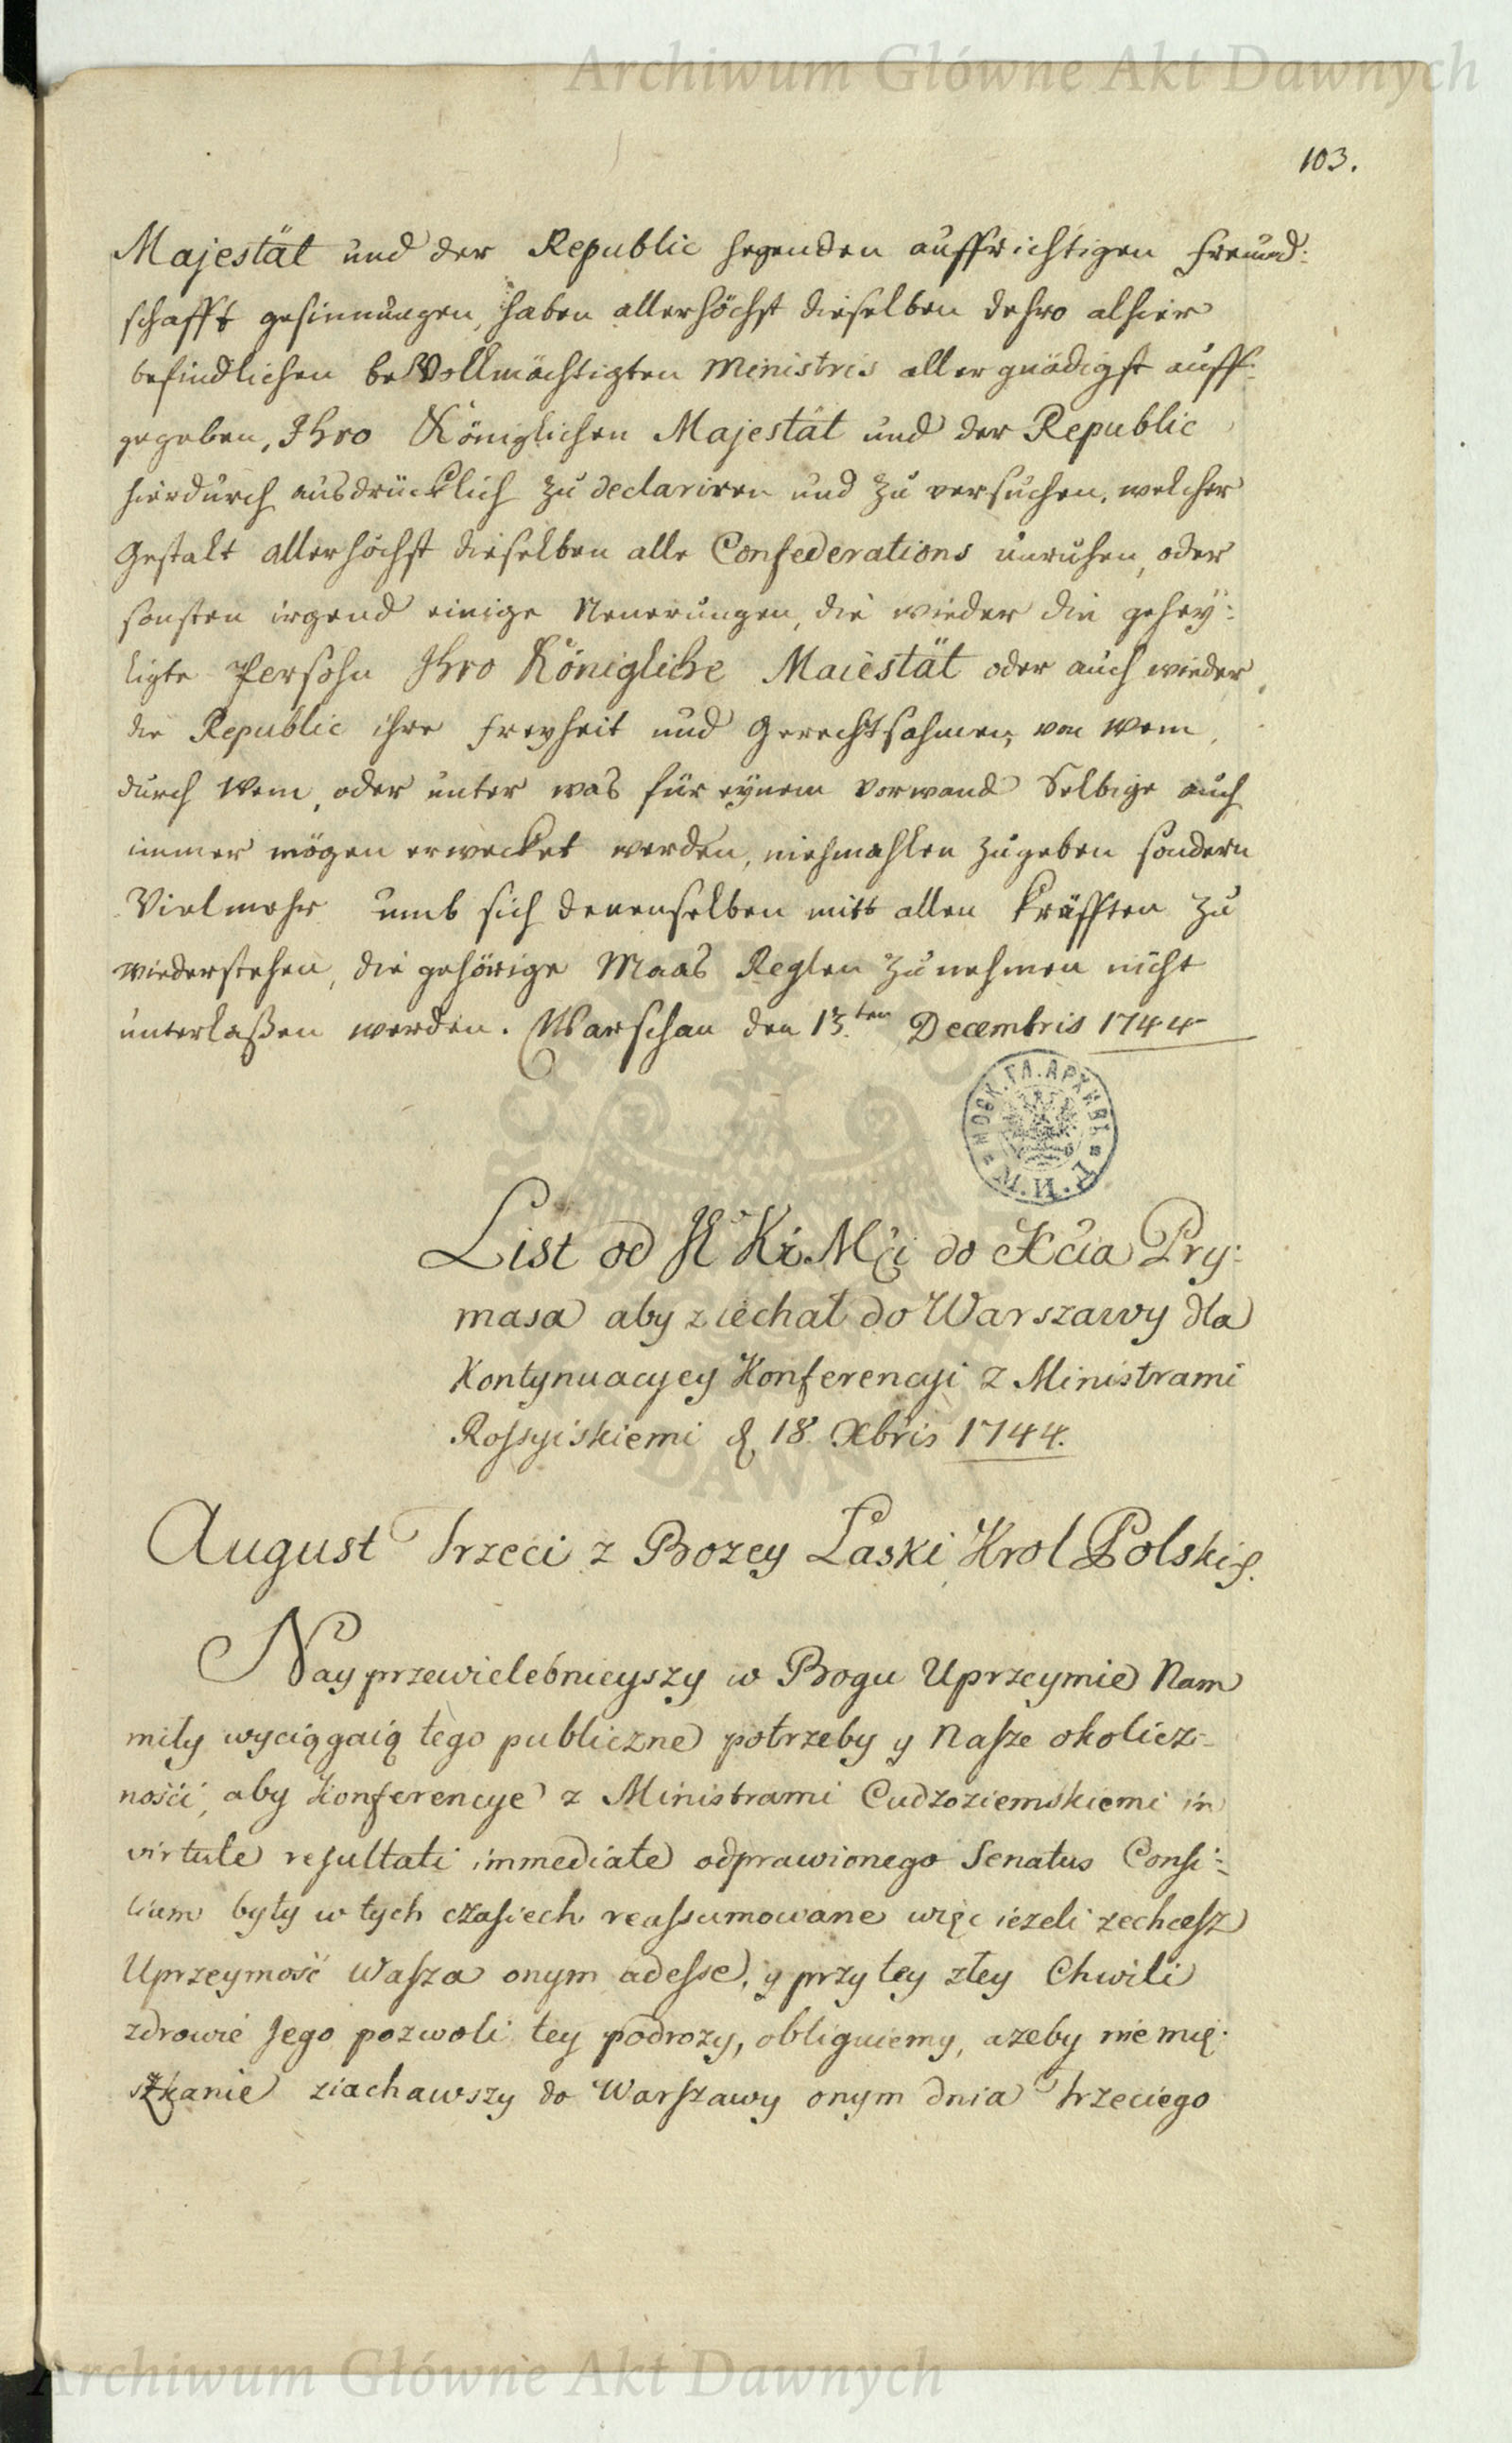 Archiwum Główne Akt Dawnych
103.
Majestät und der Republic hegenden auffrichtigen freund:
schafft gesinnungen, haben allerhöchst dieselben dehro alhier
befindlichen beVollmächtigten Ministris allergnädigst auff:
gegeben, Ihro Königlichen Majestät und der Republic
hierdurch ausdrücklich zu declariren und zu versuchen, welcher
Gestalt allerhöchst dieselben alle Confederations unruhen, oder
sonsten irgend einige Neuerungen, die wieder die gehey:
ligte Persohn Ihro Königliche Maiestät oder auch wieder
die Republic ihre freyheit und Gerechtsahmen, von wem,
durch wem, oder unter was für eynem Vorwand Selbige auch
immer mögen erwecket werden, niehmahlen zugeben sondern
Vielmehr umb sich denenselben mitt allen kräfften zu
wiederstehen, die gehörige Maas Reglen zu nehmen nicht
unterlaßen werden. Warschau den 13.ten Decembris 1744
МОСК.ГЛ.АРХИВЪ М.И.Д.
List od JK Kr Mći do Xćia Pry:
masa aby ziechał do Warszawy dla
Kontynuacyey Konferencyi z Ministrami
Rossyiskiemi d. 18 Xbris 1744.
August Trzeci z Bozey Łaski Krol Polski
Nayprzewielebnieyszy w Bogu Uprzeymie Nam
miły wyciągaią tego publiczne potrzeby y Nasze okolicz-
nośći, aby konferencye z Ministrami Cudzoziemskiemi in
virtute resultati immediate odprawionego Senatus Consi:
lium były w tych czasiech reassumowane więc iezeli zechcesz
Uprzeymość Wasza onym adesse, y przy tey złey Chwili
zdrowie Jego pozwoli tey podrozy, obliguiemy, azeby nie mię:
szkanie ziachawszy do Warszawy onym dnia Trzeciego
Archiwum Główne Akt Dawnych